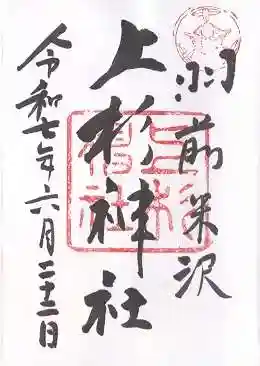 羽前米沢
上杉神社
令和七年六月二十二日
上杉神社